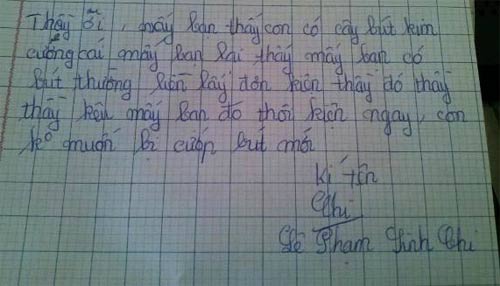 Thầy ơi, mấy bạn thấy con có cây bút kim
cương cái mấy bạn lại thấy mấy bạn có
bút thường liền lấy đơn kiện thầy đó thầy
thầy kêu mấy bạn đó thôi kiện ngay, con
kó muốn bị cướp bút mới
Kí tên
Chi
Lê Phạm Linh Chi